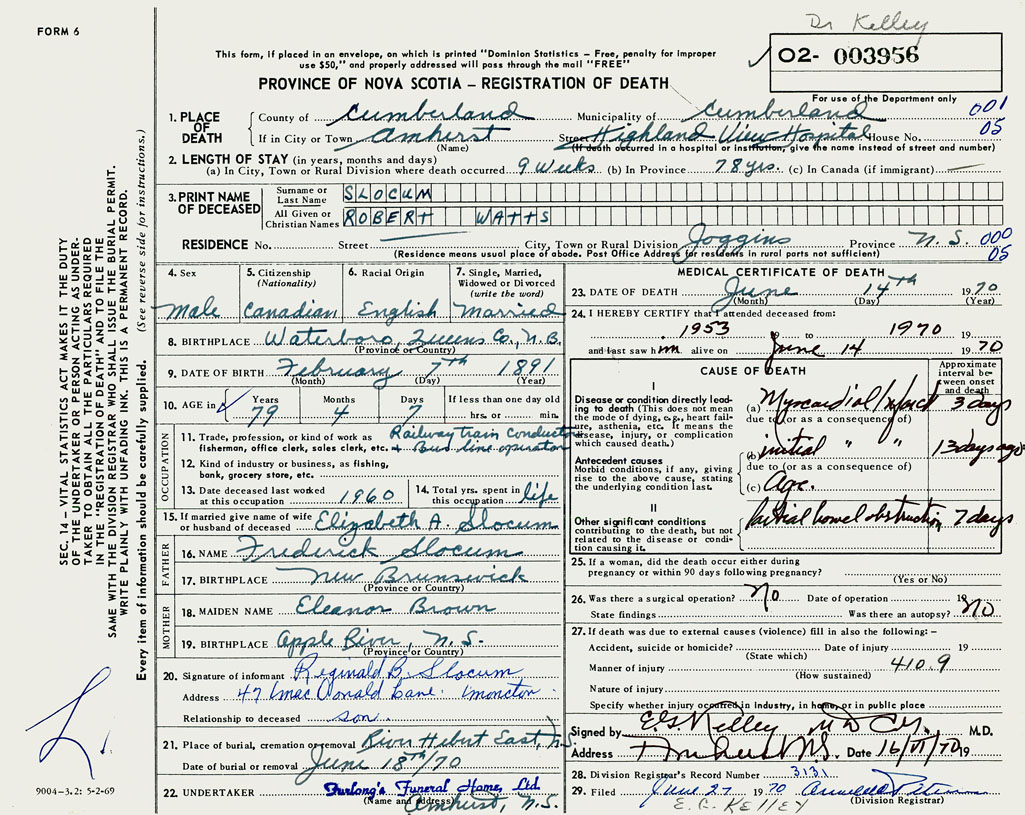 FORM 6
Dr Kelley
This form, if placed in an envelope, on which is printed "Dominion Statistics – Free, penalty for improper
use $50," and properly addressed will pass through the mail "FREE"
02- 003956
PROVINCE OF NOVA SCOTIA – REGISTRATION OF DEATH
For use of the Department only
1. PLACE OF DEATH
County of Cumberland Municipality of Cumberland 001
If in City or Town Amherst Street Highland View Hospital House No. 05
(Name) (If death occurred in a hospital or institution, give the name instead of street and number)
2. LENGTH OF STAY (in years, months and days)
(a) In City, Town or Rural Division where death occurred 9 Weeks (b) In Province 78 yrs. (c) In Canada (if immigrant) —
3. PRINT NAME OF DECEASED
Surname or Last Name SLOCUM
All Given or Christian Names ROBERT WATTS
RESIDENCE No. Street City, Town or Rural Division Joggins Province N.S. 000
(Residence means usual place of abode. Post Office Address for residents in rural parts not sufficient) 05
4. Sex
Male
5. Citizenship
(Nationality)
Canadian
6. Racial Origin
English
7. Single, Married,
Widowed or Divorced
(write the word)
Married
8. BIRTHPLACE Waterboro, Queens Co., N.B.
(Province or Country)
9. DATE OF BIRTH February 7th 1891
(Month) (Day) (Year)
10. AGE in Years Months Days If less than one day old
79 4 7 hrs. or min.
OCCUPATION
11. Trade, profession, or kind of work as Railway train conductor
fisherman, office clerk, sales clerk, etc. + Bus line operator
12. Kind of industry or business, as fishing,
bank, grocery store, etc.
13. Date deceased last worked
at this occupation 1960
14. Total yrs. spent in
this occupation life
15. If married give name of wife
or husband of deceased Elizabeth A. Slocum
FATHER
16. NAME Frederick Slocum
17. BIRTHPLACE New Brunswick
(Province or Country)
MOTHER
18. MAIDEN NAME Eleanor Brown
19. BIRTHPLACE Apple River, N.S.
(Province or Country)
20. Signature of informant Reginald B. Slocum
Address 47 MacDonald Lane. Moncton
Relationship to deceased son.
21. Place of burial, cremation or removal River Hebert East, N.S.
Date of burial or removal June 18th/70
22. UNDERTAKER Furlong's Funeral Home, Ltd.
(Name and address) Amherst, N.S.
MEDICAL CERTIFICATE OF DEATH
23. DATE OF DEATH June 14th 1970
(Month) (Day) (Year)
24. I HEREBY CERTIFY that I attended deceased from:
1953 19 to 1970 19
and last saw him alive on June 14 1970
CAUSE OF DEATH
Approximate interval between onset and death
I
Disease or condition directly leading to death (This does not mean the mode of dying, e.g., heart failure, asthenia, etc. It means the disease, injury, or complication which caused death.)
(a) Myocardial Infarct 3 days
due to (or as a consequence of)
(b) initial " " 13 days ago
Antecedent causes
Morbid conditions, if any, giving rise to the above cause, stating the underlying condition last.
due to (or as a consequence of)
(c) Age.
II
Other significant conditions
contributing to the death, but not related to the disease or condition causing it.
Partial bowel obstruction 7 days
25. If a woman, did the death occur either during
pregnancy or within 90 days following pregnancy?
(Yes or No)
26. Was there a surgical operation? No Date of operation 19
State findings Was there an autopsy? No
27. If death was due to external causes (violence) fill in also the following: –
Accident, suicide or homicide? Date of injury 19
(State which)
Manner of injury 410.9
(How sustained)
Nature of injury
Specify whether injury occurred in industry, in home, or in public place
Signed by E.G. Kelley MD M.D.
Address Amherst N.S. Date 16/VI/70 19
28. Division Registrar's Record Number 3131
29. Filed June 27 1970
(Division Registrar)
E. G. KELLEY
SEC. 14 – VITAL STATISTICS ACT MAKES IT THE DUTY
OF THE UNDERTAKER OR PERSON ACTING AS UNDER-
TAKER TO OBTAIN ALL THE PARTICULARS REQUIRED
IN THE "REGISTRATION OF DEATH" AND TO FILE THE
SAME WITH THE DIVISION REGISTRAR WHO SHALL ISSUE THE BURIAL PERMIT.
WRITE PLAINLY WITH UNFADING INK. THIS IS A PERMANENT RECORD.
Every item of information should be carefully supplied. (See reverse side for instructions.)
9004-3.2: 5-2-69